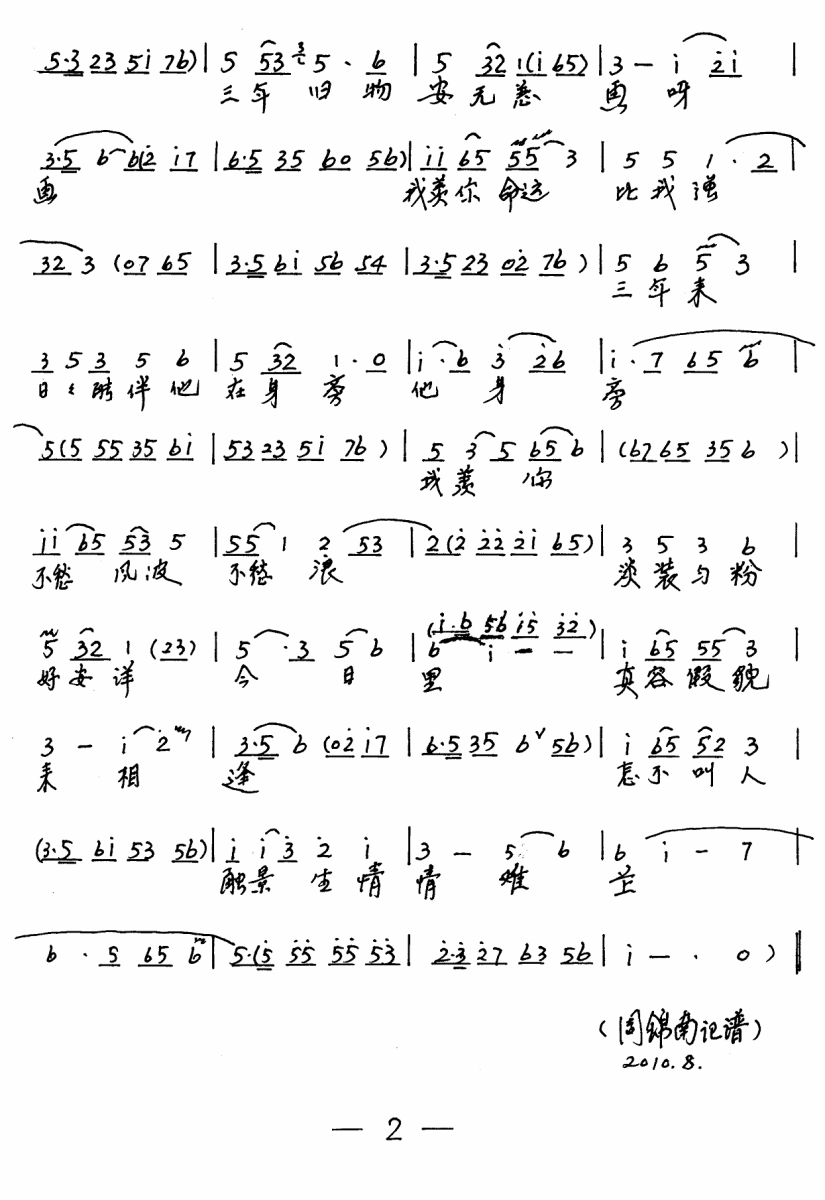 5·3 23 5i 76) | 5 53 3 5 · 6 | 5 32 1(i 65) | 3 — i 2i |
三年 旧 物 安 无 恙 画 呀
3·5 6 6(2 i7 | 6·5 35 60 56) | ii 65 55 3 | 5 5 1 · 2 |
画 我羡你 命运 比 我 强
32 3 (07 65 | 3·5 6i 56 54 | 3·5 23 02 76) | 5 6 5 3 |
三 年 来
3 5 3 5 6 | 5 32 1 · 0 | i · 6 3 26 | i · 7 65 6 |
日々陪伴他 在身 旁 他 身 旁
5(5 55 35 6i | 53 23 5i 76) | 5 3 5 65 6 | (67 65 35 6) |
我 羡 你
ii 65 53 5 | 55 1 2 53 | 2(2 22 2i 65) | 3 5 3 6 |
不愁 风波 不愁 浪 淡 装 与 粉
(i·6 56 i5 32)
5 32 1 (23) | 5 · 3 5 6 | 6 i — — | i 65 55 3 |
好安详 今 日 里 真容 假 貌
3 — i 2 | 3·5 6 (02 i7 | 6·5 35 6 ∨ 56) | i 65 52 3 |
来 相 逢 怎不 叫 人
(3·5 6i 53 56) | i i 3 2 i | 3 — 5 6 | 6 i — 7 |
触景 生 情 情 难
6 · 5 65 6 | 5·(5 55 55 53 | 2·3 27 63 56 | i — · 0) ‖
(周锦南记谱)
2010.8.
— 2 —